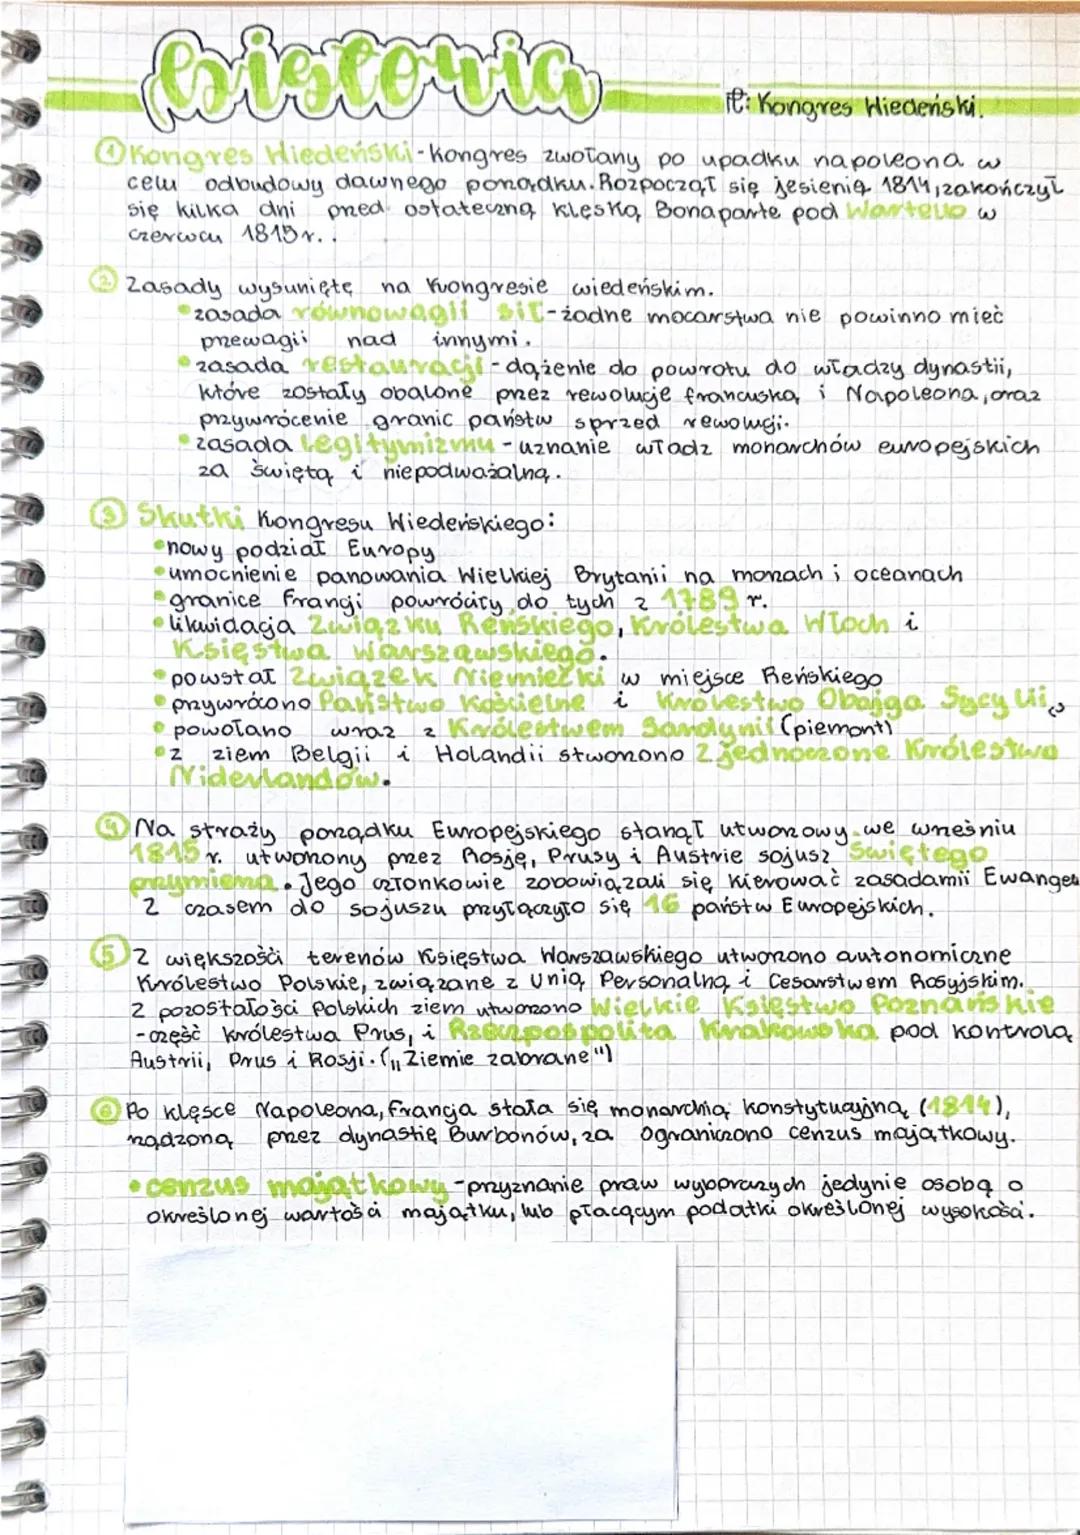 historia
T: Kongres Wiedeński.
① Kongres Wiedeński - kongres zwołany po upadku napoleona w
celu odbudowy dawnego porządku. Rozpoczął się jesienią 1814, zakończył
się kilka dni przed ostateczną klęską Bonaparte pod Warteuo w
czerwcu 1815 r..
② Zasady wysunięte na kongresie wiedeńskim.
• zasada równowagii sił - żadne mocarstwa nie powinno mieć
przewagii nad innymi.
• zasada restauracji - dążenie do powrotu do władzy dynastii,
które zostały obalone przez rewolucje francuską i Napoleona, oraz
przywrócenie granic państw sprzed rewolucji.
• zasada Legitymizmu - uznanie władz monarchów europejskich
za świętą i niepodważalną.
③ Skutki Kongresu Wiedeńskiego:
• nowy podział Europy
• umocnienie panowania Wielkiej Brytanii na morzach i oceanach
• granice Francji powróciły do tych z 1789 r.
• likwidacja Związku Reńskiego, Królestwa Włoch i
Księstwa Warszawskiego.
• powstał Związek Niemiecki w miejsce Reńskiego
• przywrócono Państwo Kościelne i Królestwo Obojga Sycylii
• powołano wraz z Królestwem Sardynii (piemont)
• z ziem Belgii i Holandii stworzono Zjednoczone Królestwo
Niderlandów.
④ Na straży porządku Europejskiego stanął utworzowy we wrześniu
1815 r. utworzony przez Rosję, Prusy i Austrie sojusz Świętego
przymierza. Jego członkowie zobowiązali się kierować zasadamii Ewangeli
z czasem do sojuszu przyłączyło się 16 państw Europejskich.
⑤ Z większości terenów Księstwa Warszawskiego utworzono autonomiczne
Królestwo Polskie, związane z Unią Personalną i Cesarstwem Rosyjskim.
z pozostałości Polskich ziem utworzono Wielkie Księstwo Poznańskie
- część królestwa Prus, i Rzeczpospolita Krakowska pod kontrolą
Austrii, Prus i Rosji. („Ziemie zabrane")
⑥ Po klęsce Napoleona, Francja stała się monarchią konstytucyjną (1814),
rządzoną przez dynastię Burbonów, za ograniczono cenzus majątkowy.
• cenzus majątkowy - przyznanie praw wyborczych jedynie osobą o
określonej wartości majątku, lub płacącym podatki określonej wysokości.